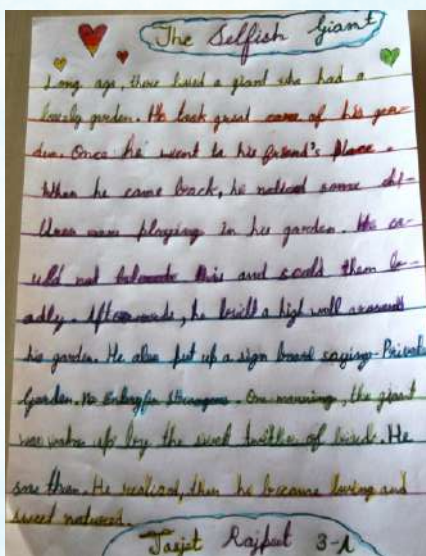 The Selfish Giant
Long ago, there lived a giant who had a
lovely garden. He took great care of his gar-
den. Once he went to his friend's place.
When he came back, he noticed some chi-
ldren were playing in his garden. He co-
uld not tolerate this and scold them ba-
adly. Afterwards, he built a high wall around
his garden. He also put up a sign board saying- Private
Garden. No Entry for Strangers. One morning, the giant
was woken up by the sweet twitter of birds. He
saw them. He realized, then he became loving and
sweet natured.
Jasjet Rajput 3-A